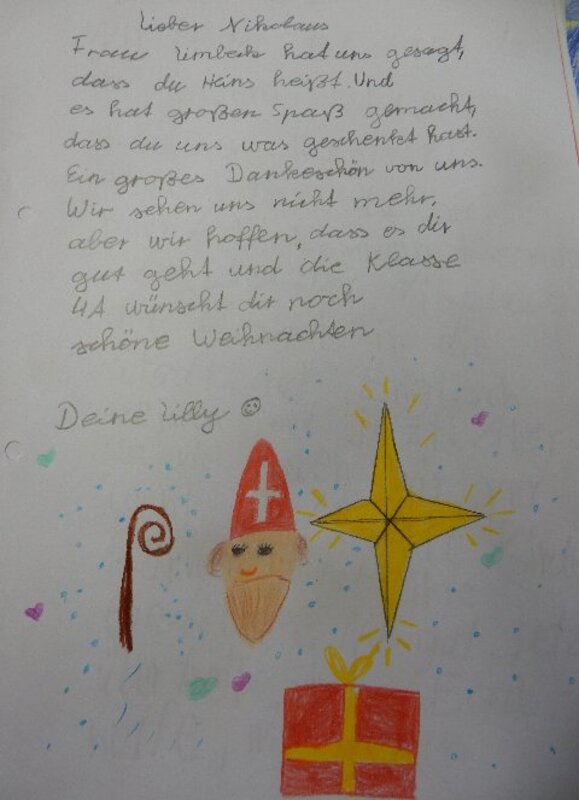 Lieber Nikolaus
Frau Limbeck hat uns gesagt,
dass du Heins heißt. Und
es hat großen Spaß gemacht,
dass du uns was geschenkt hast.
Ein großes Dankeschön von uns.
Wir sehen uns nicht mehr,
aber wir hoffen, dass es dir
gut geht und die Klasse
4A wünscht dir noch
schöne Weihnachten
Deine Lilly ☺